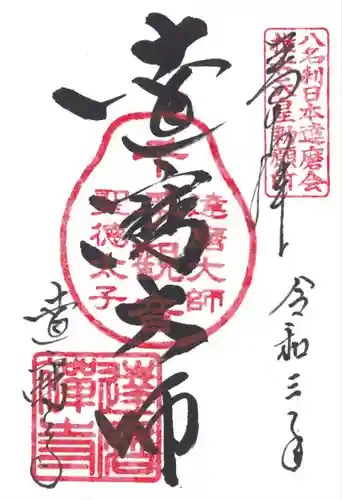 八名刹日本達磨会
令和三年
達磨大師
達磨大師
千手観音
聖徳太子
達磨寺
達磨
禅寺